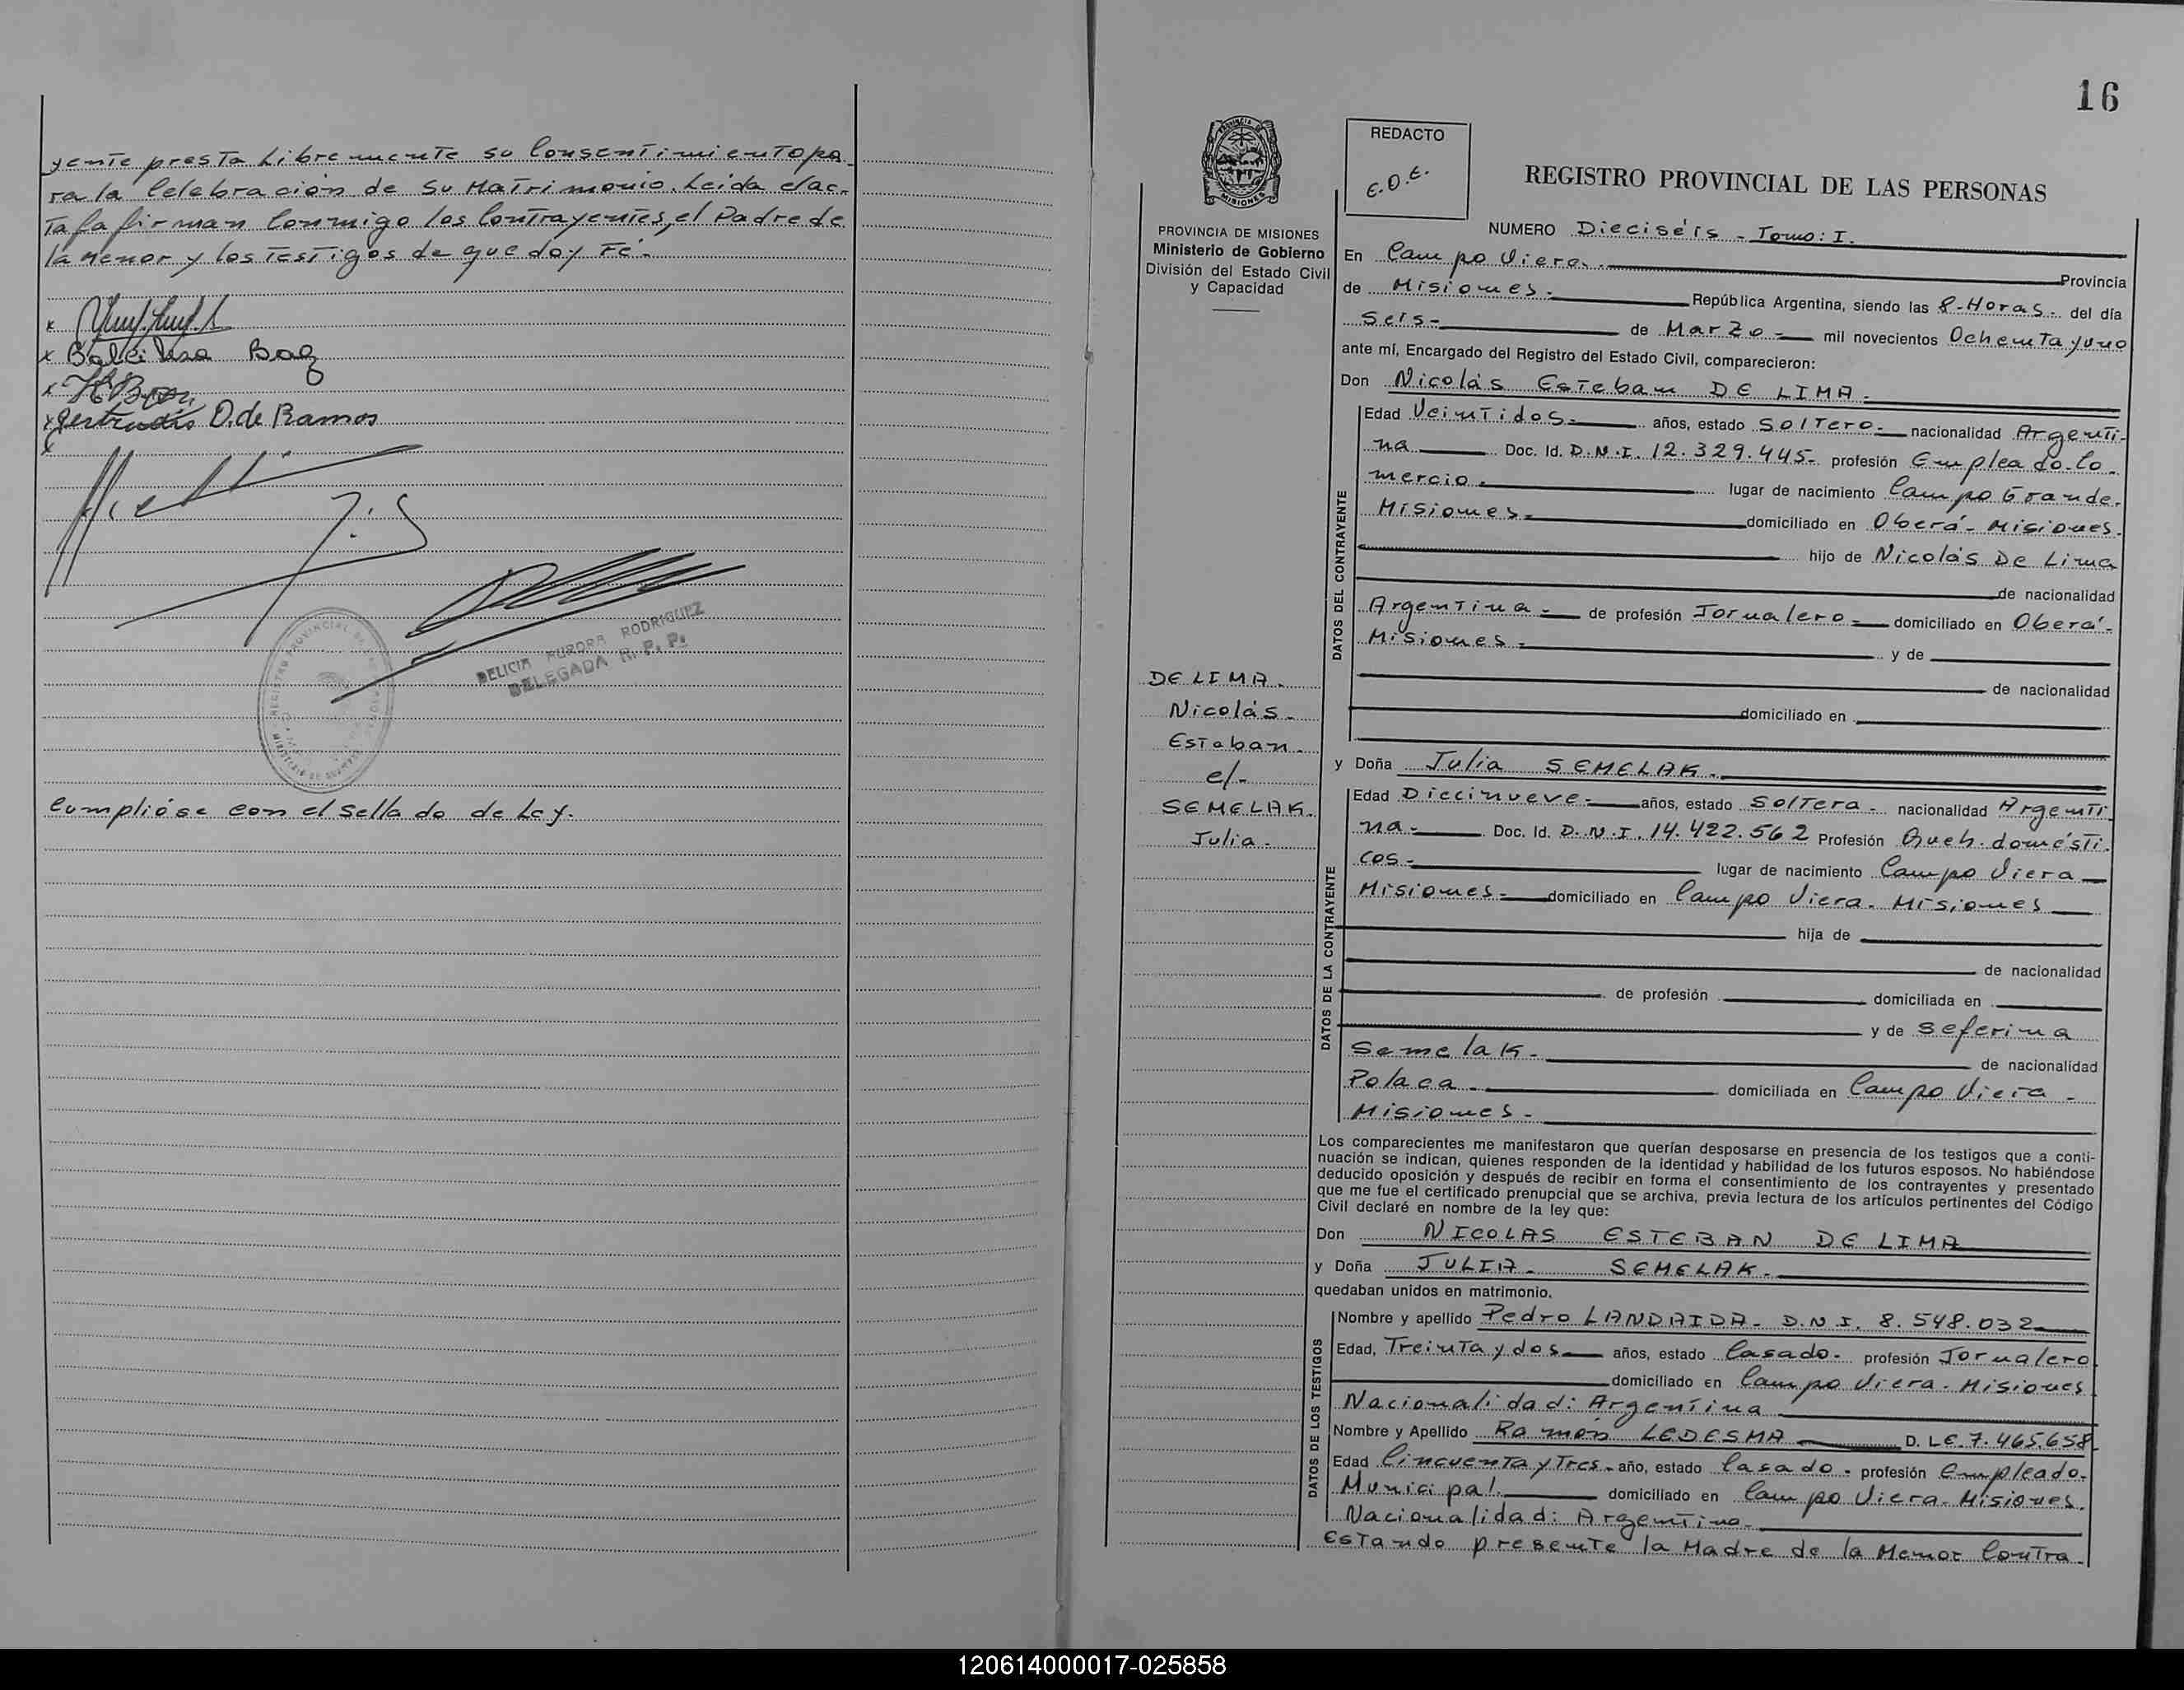 yente presta Libremente su Consentimiento pa
ra la Celebración de su Matrimonio. Leída el ac-
ta la firman Conmigo los Contrayentes, el Padre de
la menor y los Testigos de que doy Fé.-
x
x Balbina Baez
x
x Gertrudis O. de Ramos
x
DELICIA AURORA RODRIGUEZ
DELEGADA R. P. P.
Cumplióse con el sellado de Ley.
16
PROVINCIA DE MISIONES
Ministerio de Gobierno
División del Estado Civil
y Capacidad
REDACTO
E.O.E.
REGISTRO PROVINCIAL DE LAS PERSONAS
NUMERO Dieciséis - Tomo: I.
En Campo Viera.- Provincia
de Misiones.- República Argentina, siendo las 8-Horas- del día
Seis- de Marzo- mil novecientos Ochenta y uno
ante mí, Encargado del Registro del Estado Civil, comparecieron:
Don Nicolás Esteban DE LIMA.-
DATOS DEL CONTRAYENTE
Edad Veintidos- años, estado Soltero- nacionalidad Argenti-
na Doc. Id. D.N.I. 12.329.445- profesión Empleado-Co-
mercio. lugar de nacimiento Campo Grande.
Misiones- domiciliado en Oberá- Misiones.
hijo de Nicolás De Lima
de nacionalidad
Argentina- de profesión Jornalero- domiciliado en Oberá-
Misiones- y de
de nacionalidad
domiciliado en
DE LIMA.
Nicolás-
Esteban.
c/-
SEMELAK.
Julia-
y Doña Julia SEMELAK.-
DATOS DE LA CONTRAYENTE
Edad Diecinueve- años, estado Soltera- nacionalidad Argenti
na- Doc. Id. D.N.I. 14.422.562 Profesión Queh. domésti-
cos- lugar de nacimiento Campo Viera
Misiones- domiciliado en Campo Viera. Misiones
hija de
de nacionalidad
de profesión domiciliada en
y de Seferina
Semelak- de nacionalidad
Polaca- domiciliada en Campo Viera-
Misiones-
Los comparecientes me manifestaron que querían desposarse en presencia de los testigos que a conti-
nuación se indican, quienes responden de la identidad y habilidad de los futuros esposos. No habiéndose
deducido oposición y después de recibir en forma el consentimiento de los contrayentes y presentado
que me fue el certificado prenupcial que se archiva, previa lectura de los artículos pertinentes del Código
Civil declaré en nombre de la ley que:
Don NICOLAS ESTEBAN DE LIMA
y Doña JULIA- SEMELAK.-
quedaban unidos en matrimonio.
DATOS DE LOS TESTIGOS
Nombre y apellido Pedro LANDAIDA- D.N.I. 8.548.032
Edad, Treinta y dos- años, estado Casado- profesión Jornalero
domiciliado en Campo Viera- Misiones
Nacionalidad: Argentina
Nombre y Apellido Ramón LEDESMA D. LE. 7.465.658
Edad Cincuenta y Tres- año, estado Casado- profesión Empleado-
Municipal. domiciliado en Campo Viera- Misiones.
Nacionalidad: Argentina-
Estando presente la Madre de la Menor Contra-
120614000017-025858